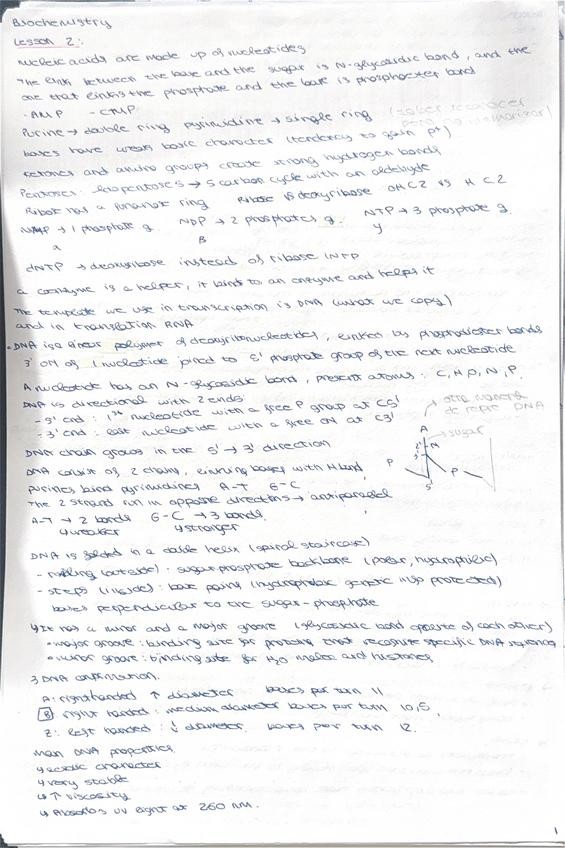 Biochemistry
Lesson 2:
nucleic acids are made up of nucleotides
The link between the base and the sugar is N-glycosidic bond, and the
one that links the phosphate and the base is phosphoester bond
- AMP - CMP
Purine → double ring pyrimidine → single ring (saber reconocer
bases have weak basic character (tendency to gain p+) memorizar)
ketones and amino groups create strong hydrogen bonds
Pentoses: → 5 carbon cycle with an aldehyde
Ribose has a furanose ring Ribose vs deoxyribose OH C2 vs H C2
NMP → 1 phosphate g. NDP → 2 phosphates g. NTP → 3 phosphate g.
α β γ
dNTP → deoxyribose instead of ribose (NTP
a coenzyme is a helper, it binds to an enzyme and helps it
The template we use in transcription is DNA (what we copy)
and in translation RNA
• DNA is a linear polymer of deoxyribonucleotides, linked by phosphodiester bonds
3' OH of 1 nucleotide joined to 5' phosphate group of the next nucleotide
A nucleotide has an N-glycosidic bond, present atoms: C, H, O, N, P.
DNA is directional with 2 ends
- 5' end: 1st nucleotide with a free P group at C5'
- 3' end: last nucleotide with a free OH at C3'
→ otra manera
de repre DNA
A
→ sugar
P
P
5'
DNA chain grows in the 5' → 3' direction
DNA consist of 2 chains, linking bases with H bond
purines bind pyrimidines A-T G-C
The 2 strand run in opposite directions → antiparallel
A-T → 2 bonds G-C → 3 bonds
↳ weaker ↳ stronger
DNA is folded in a double helix (spiral staircase)
- railing (outside): sugar phosphate backbone (polar, hydrophilic)
- steps (inside): base pairs (hydrophobic genetic info protected)
bases perpendicular to the sugar-phosphate
↳ It has a minor and a major groove (glycosidic bond opposite of each other)
• major groove: binding site for proteins that recognise specific DNA sequences
• minor groove: binding site for H2O molec and histones
3 DNA conformation.
A: right handed ↑ diameter bases per turn 11
B right handed: medium diameter bases per turn 10,5.
Z: left handed: ↓ diameter. bases per turn 12.
main DNA properties
↳ acidic character
↳ very stable
↳ ↑ viscosity
↳ Absorbs UV light at 260 nm.
1